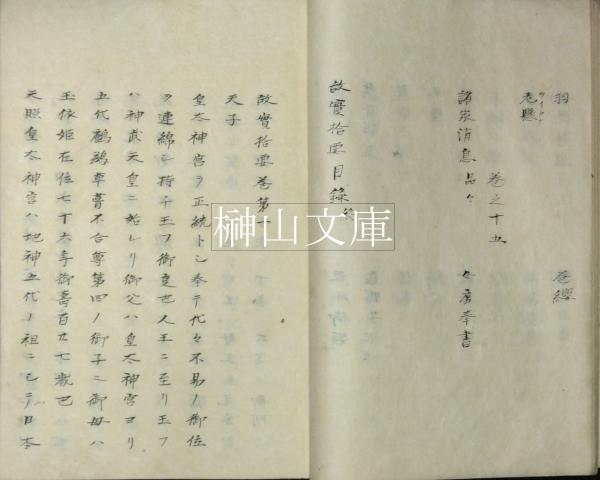 羽
巻纓
老懸
ヲイカケ
巻之十五
諸家消息品々
女房奉書
故實拾要目録終
故實拾要巻第一
天子
皇太神宮ヲ正統トシ奉テ代々不易ノ御位
ヲ連綿シ持チ玉フ御吏也人王ニ至リ玉フ
ハ神武天皇ニ始レリ御父ハ皇太神宮ヨリ
五代鸕鷀草葺不合尊第四ノ御子ニ御母ハ
玉依姫在位七十六年御壽百廿七歳也
天照皇太神宮ハ地神五代ノ祖ニ乄テ日本
榊山文庫